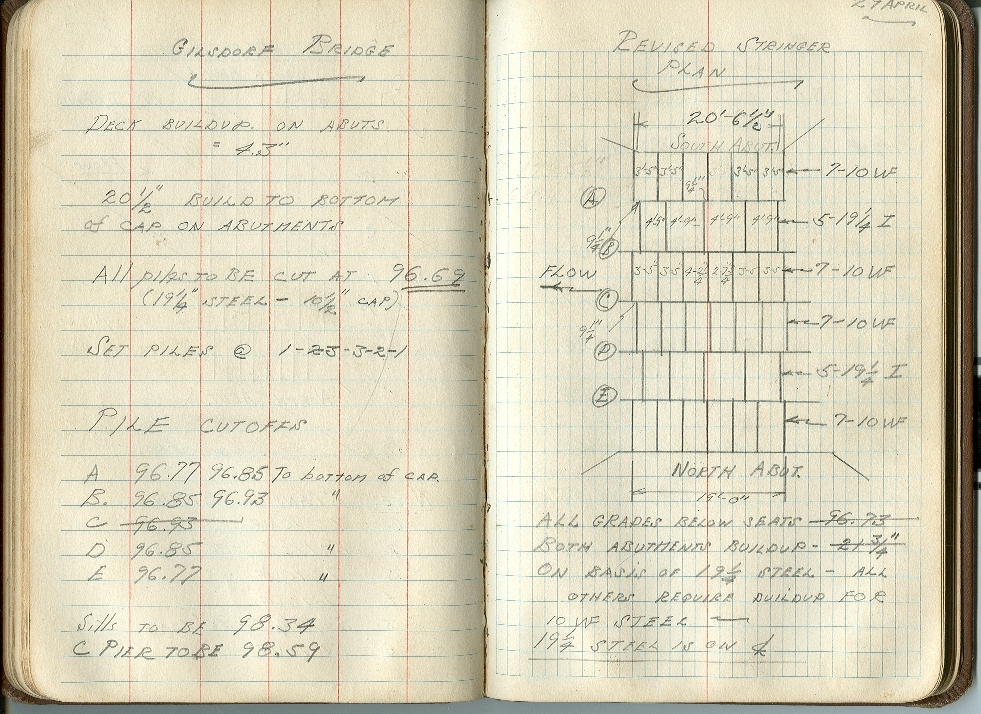 GILSDORF BRIDGE
DECK BUILDUP ON ABUTS
= 4.3"
20 1/2" BUILD TO BOTTOM
of CAP ON ABUTMENTS
All piles TO BE CUT AT 96.69
(19 1/4" STEEL - 10 1/2" CAP)
SET PILES @ 1-23-3-2-1
PILE CUTOFFS
A 96.77 96.85 To bottom of CAP.
B. 96.85 96.93 "
C 96.93
D 96.85 "
E 96.77 "
Sills TO BE 98.34
C PIER TO BE 98.59
27 APRIL
REVISED STRINGER
PLAN
20'-6 1/2"
SOUTH ABUT.
3'-5 3'-5 9 1/4" 3'-5 3'-5 7-10 WF
A
4'-9" 4'-9" 4'-9" 4'-9" 5-19 1/4 I
9 1/4" B
FLOW 3-5 3-5 3-5 3-5 7-10 WF
C
7-10 WF
9 1/4" D
5-19 1/4 I
E
7-10 WF
NORTH ABUT.
19'-0"
ALL GRADES BELOW SEATS 96.73
BOTH ABUTMENTS BUILDUP - 21 3/4"
ON BASIS OF 19 1/4 STEEL - ALL
OTHERS REQUIRE BUILDUP FOR
10 WF STEEL
19 1/4 STEEL IS ON ℄